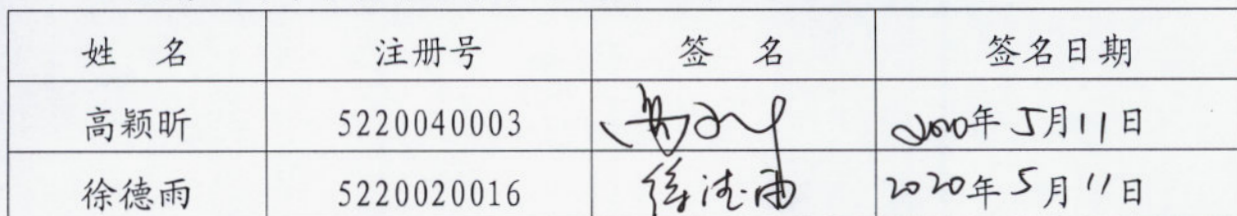 姓 名 注册号 签 名 签名日期
高颖昕 5220040003 2020年5月11日
徐德雨 5220020016 徐德雨 2020年5月11日